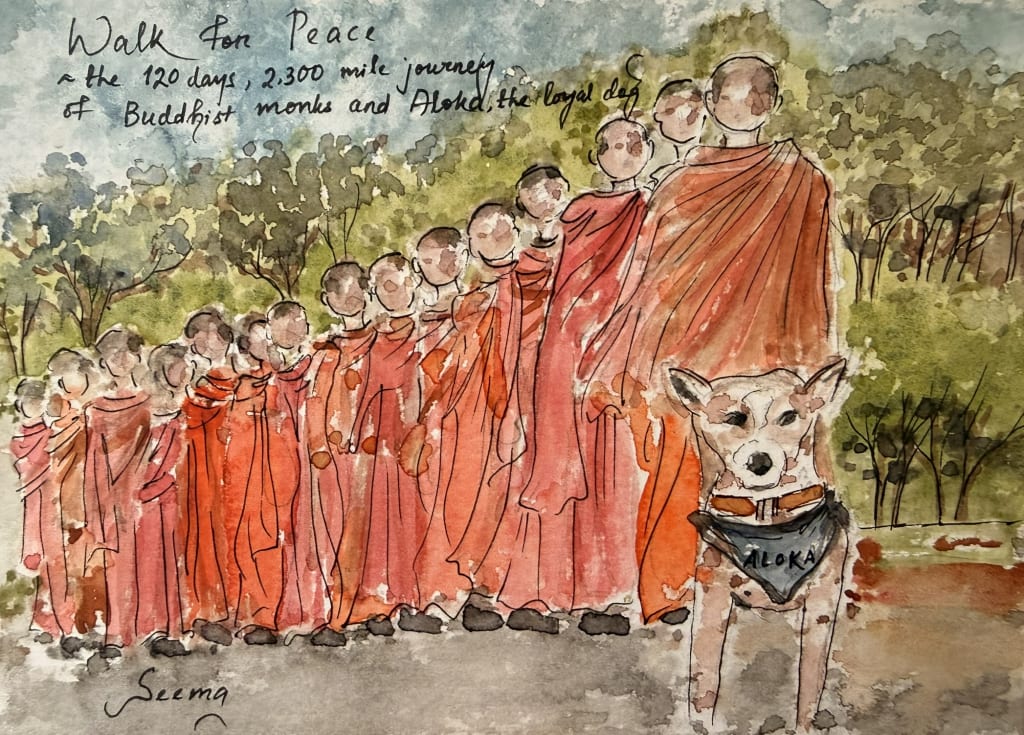 Walk for Peace
~ the 120 days, 2,300 mile journey
of Buddhist monks and Aloka, the loyal dog
ALOKA
Seema